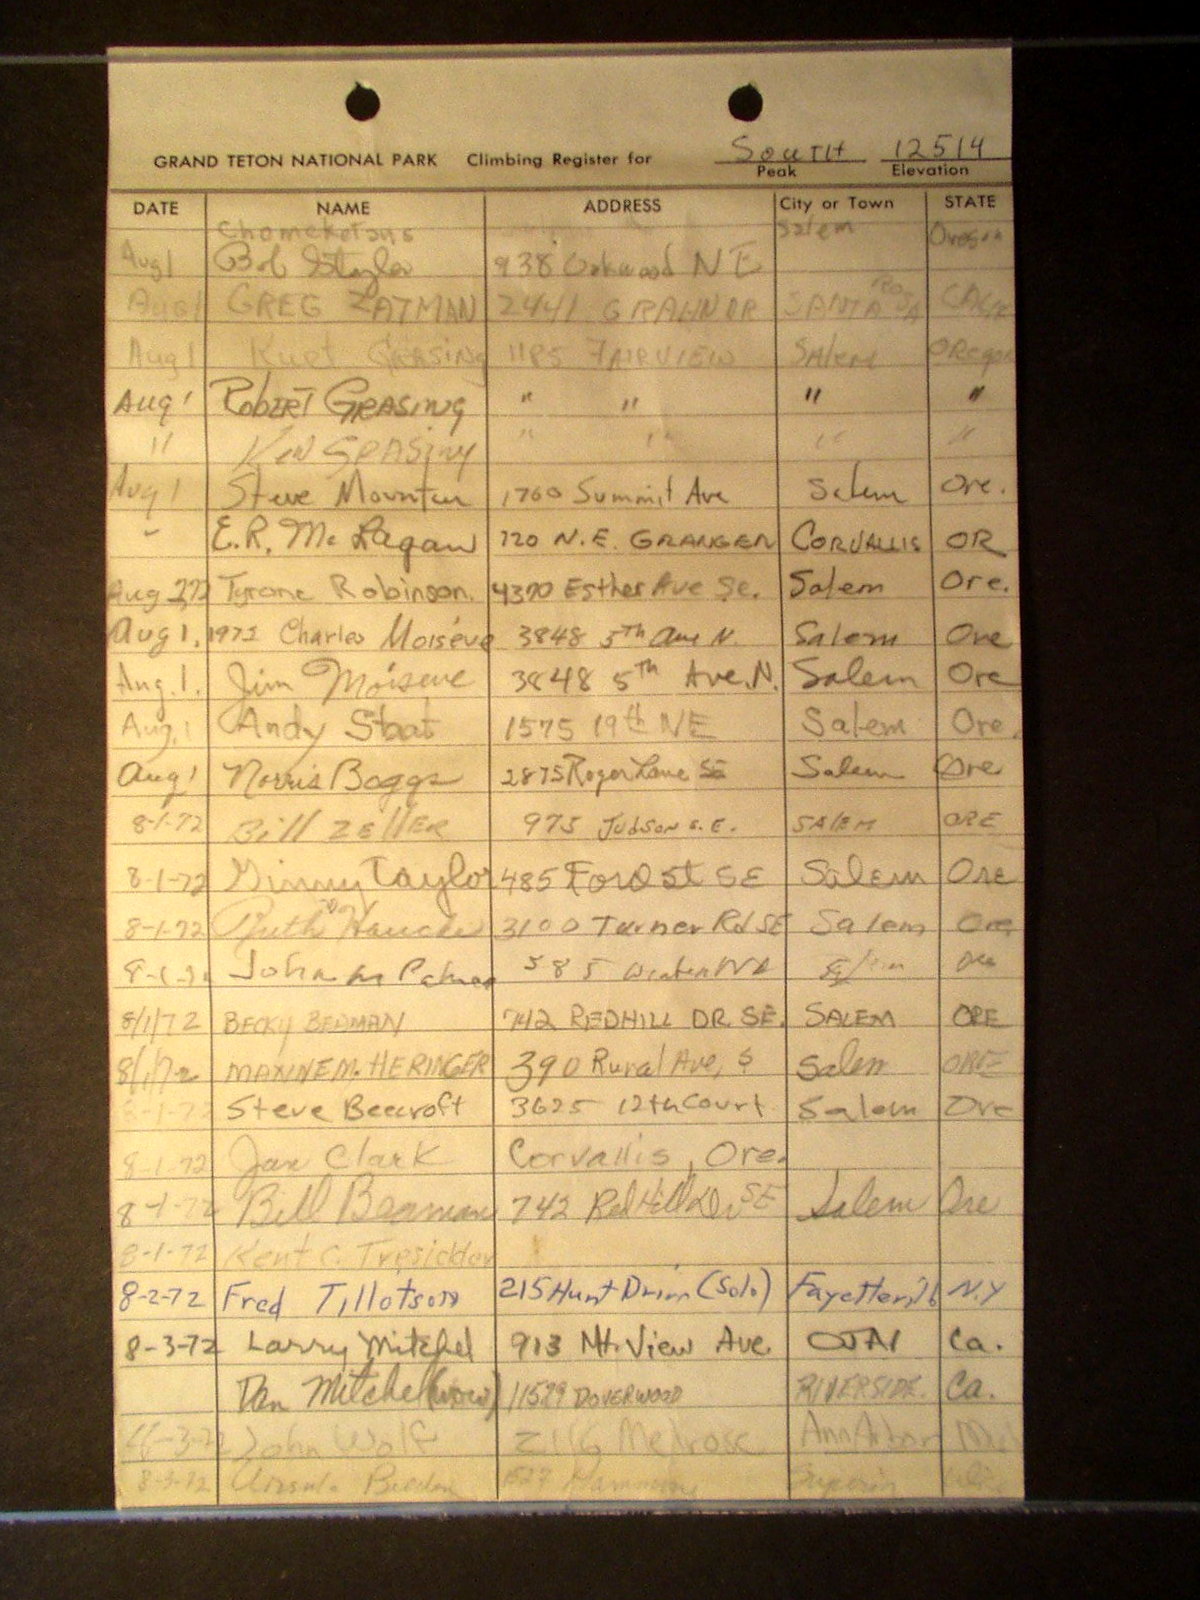 GRAND TETON NATIONAL PARK Climbing Register for South 12514
Peak Elevation
DATE NAME ADDRESS City or Town STATE
Chemeketans Salem Oregon
Aug 1 Bob 938 Oakwood NE
Aug 1 GREG ZATMAN 2441 GRAHN DR SANTA ROSA CALIF
Aug 1 Kurt GRASING 1185 FAIRVIEW Salem ORegon
Aug 1 Robert GRASING " " " "
" Ken GRASING " " " "
Aug 1 Steve Mounteer 1760 Summit Ave Salem Ore.
" E.R. McLagan 720 N.E. GRANGER CORVALLIS OR
Aug Tyrone Robinson. 4370 Esther Ave Se. Salem Ore.
Aug 1, 1972 Charles Moiseve 3848 5th Ave N. Salem Ore
Aug. 1. Jim Moiseve 3848 5th Ave. N. Salem Ore
Aug. 1 Andy Staat 1575 19th NE Salem Ore.
Aug 1 Norris Boggs 2875 Roger Lane SE Salem Ore
8-1-72 Bill ZELLER 975 JUDSON S.E. SALEM ORE
8-1-72 Ginny Taylor 485 Ford St SE Salem Ore
8-1-72 Ruth 3100 Turner Rd SE Salem Ore
John M 585 Salem Ore
8/1/72 BECKY BEDMAN 742 REDHILL DR. SE. SALEM ORE
8/1/72 MANNE M. HERINGER 390 Rural Ave, S Salem ORE
8-1-72 Steve Beecroft 3625 12th Court Salem Ore
8-1-72 Jan Clark Corvallis, Ore.
8-1-72 Bill 742 Red Hill Dr SE Salem Ore
8-1-72 Kent C. Tresidder
8-2-72 Fred Tillotson 215 Hunt Drive (Solo) Fayetteville N.Y
8-3-72 Larry Mitchel 913 Mt. View Ave. OJAI Ca.
Dan Mitchel 11529 DOVERWOOD RIVERSIDE. Ca.
John Wolf 2116 Melrose Ann Arbor
8-3-72 Superior